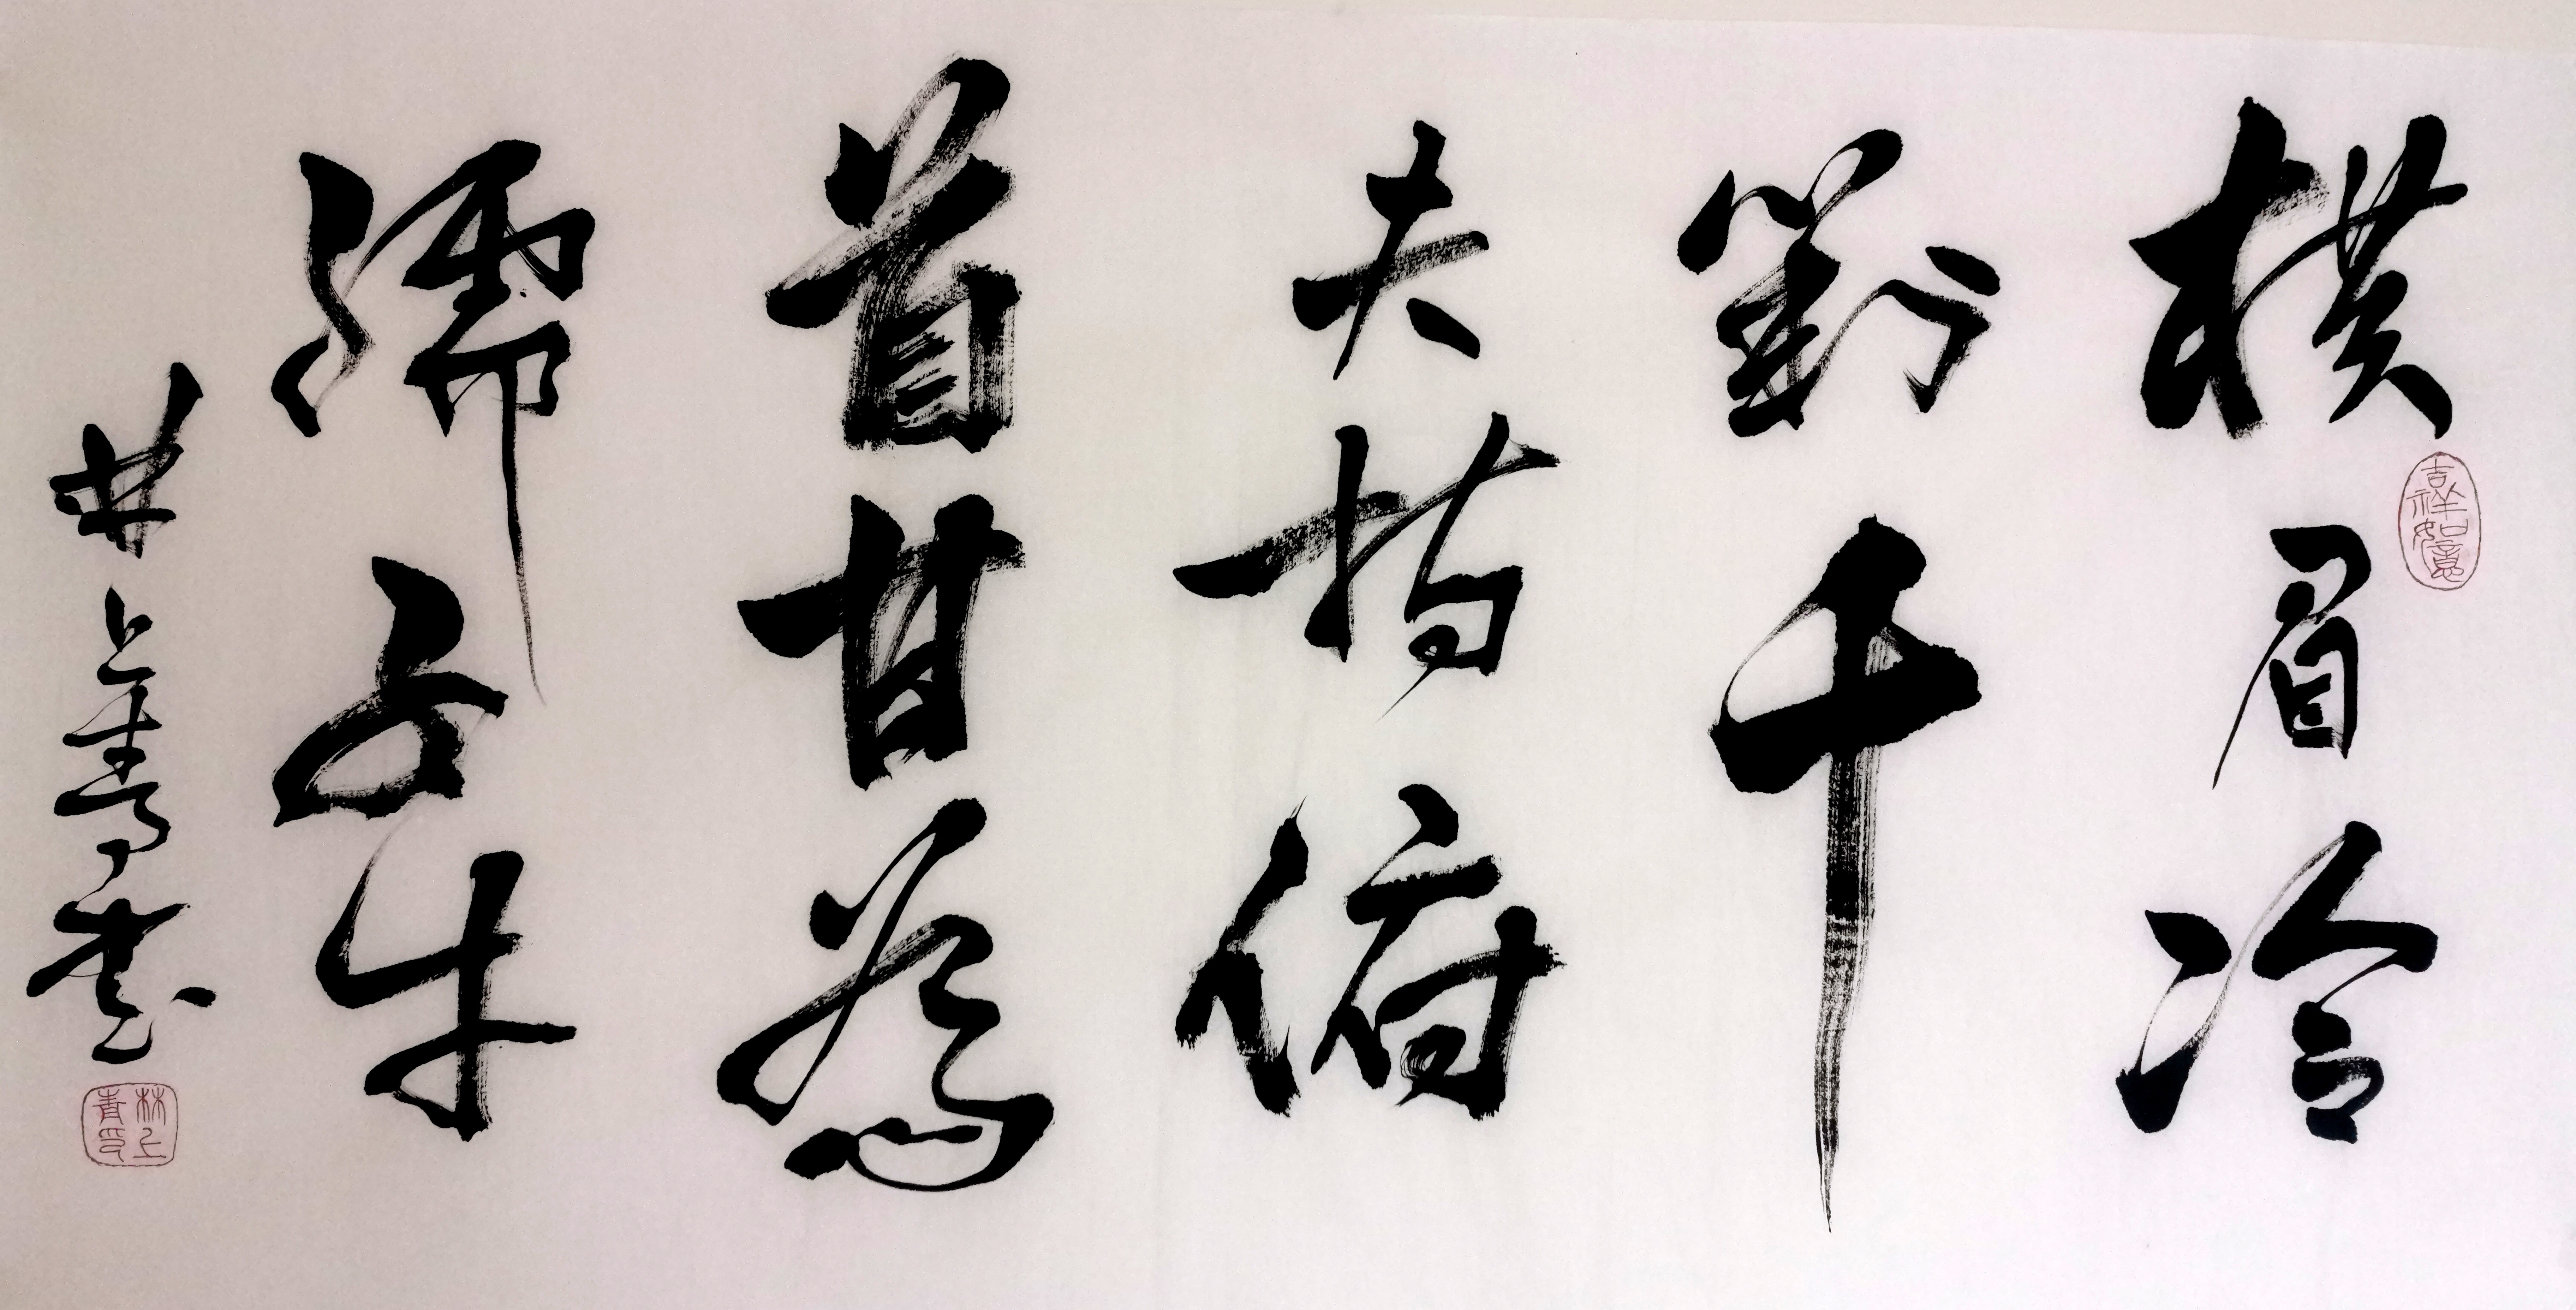 橫眉冷
對千
夫指俯
首甘為
孺子牛
林上青書
吉祥如意
林上青印